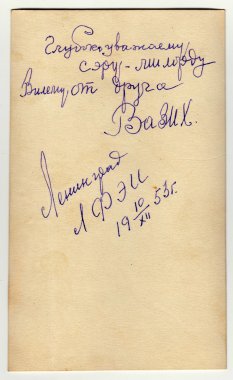 Глубокоуважаемому
сэру-милорду
Вилему от друга
Вазих.
Ленинград
ЛФЭИ
19 10/XII 53г.